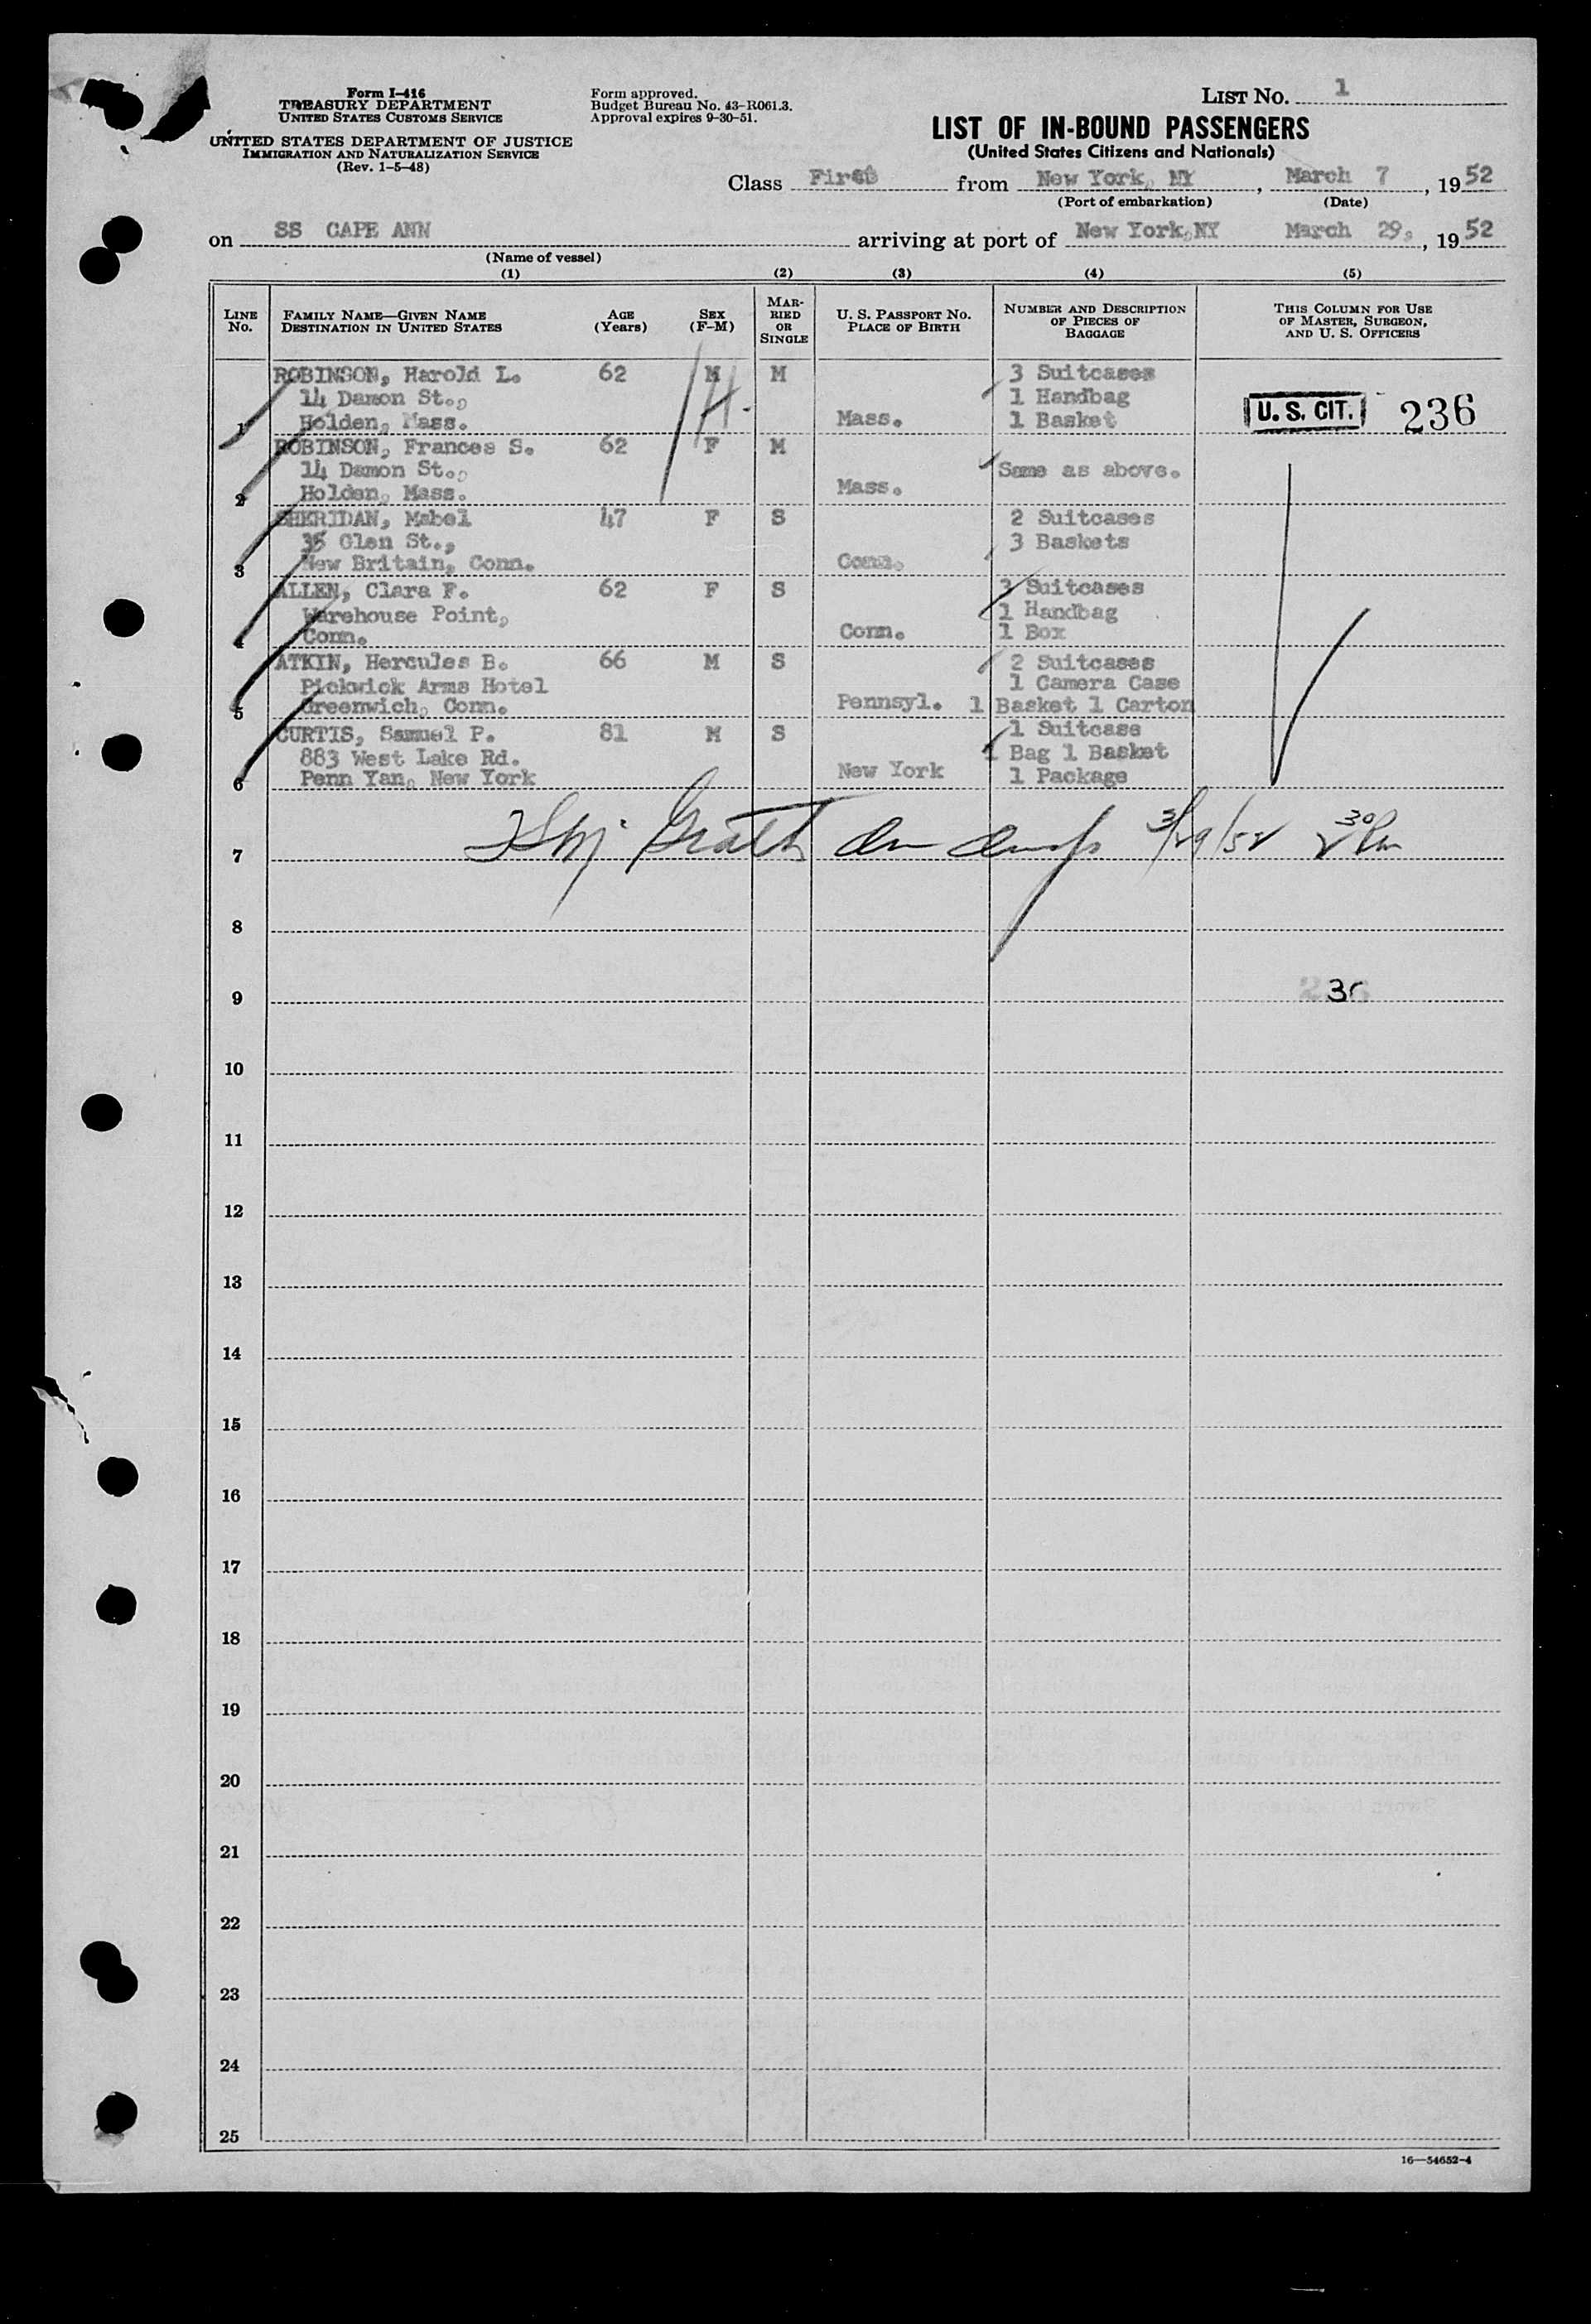 Form I-416
TREASURY DEPARTMENT
UNITED STATES CUSTOMS SERVICE
UNITED STATES DEPARTMENT OF JUSTICE
IMMIGRATION AND NATURALIZATION SERVICE
(Rev. 1-5-48)
Form approved.
Budget Bureau No. 43-R061.3.
Approval expires 9-30-51.
LIST NO. 1
LIST OF IN-BOUND PASSENGERS
(United States Citizens and Nationals)
Class First from New York, NY, March 7, 1952
(Port of embarkation) (Date)
on SS CAPE ANN arriving at port of New York, NY March 29, 1952
(Name of vessel)
(1) (2) (3) (4) (5)
LINE No. FAMILY NAME—GIVEN NAME DESTINATION IN UNITED STATES AGE (Years) SEX (F-M) MARRIED OR SINGLE U. S. PASSPORT NO. PLACE OF BIRTH NUMBER AND DESCRIPTION OF PIECES OF BAGGAGE THIS COLUMN FOR USE OF MASTER, SURGEON, AND U. S. OFFICERS
ROBINSON, Harold L. 62 M M 3 Suitcases
14 Damon St., 1 Handbag
1 Holden, Mass. Mass. 1 Basket U. S. CIT. 236
ROBINSON, Frances S. 62 F M
14 Damon St., Same as above.
2 Holden, Mass. Mass.
SHERIDAN, Mabel 47 F S 2 Suitcases
35 Glen St., 3 Baskets
3 New Britain, Conn. Conn.
ALLEN, Clara F. 62 F S 3 Suitcases
Warehouse Point, 1 Handbag
4 Conn. Conn. 1 Box
ATKIN, Hercules B. 66 M S 2 Suitcases
Pickwick Arms Hotel 1 Camera Case
5 Greenwich, Conn. Pennsyl. 1 Basket 1 Carton
CURTIS, Samuel P. 81 M S 1 Suitcase
883 West Lake Rd. 1 Bag 1 Basket
6 Penn Yan, New York New York 1 Package
7 3/29/52 2 30 Pm
8
9
10
11
12
13
14
15
16
17
18
19
20
21
22
23
24
25
16—54652-4